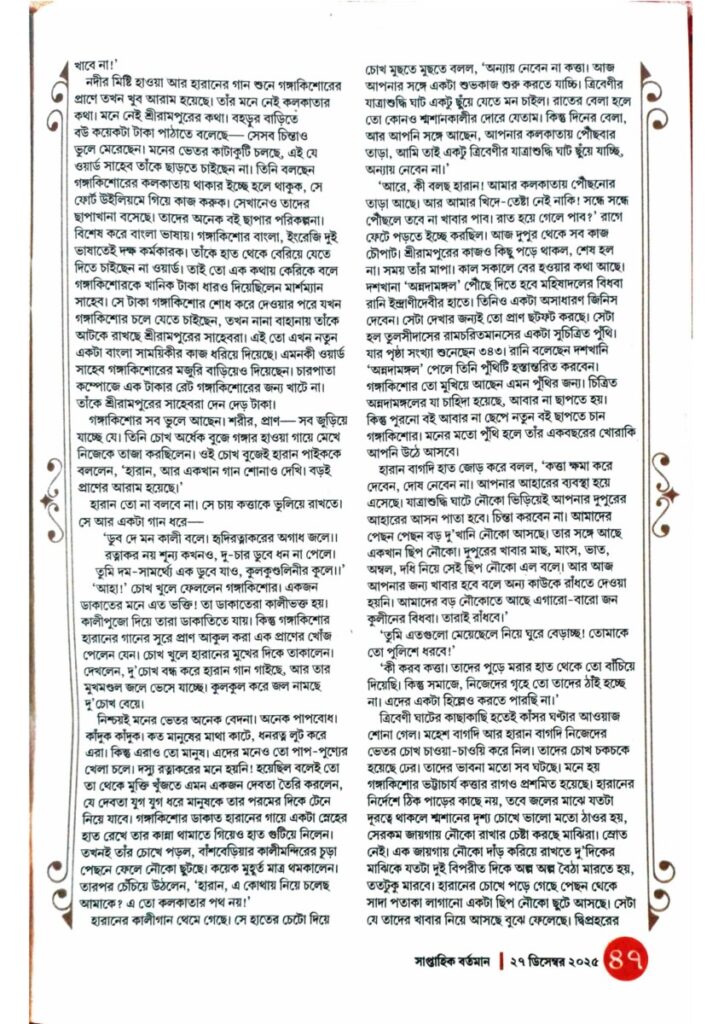 খাবে না!'
নদীর মিষ্টি হাওয়া আর হারানের গান শুনে গঙ্গাকিশোরের
প্রাণে তখন খুব আরাম হয়েছে। তাঁর মনে নেই কলকাতার
কথা। মনে নেই শ্রীরামপুরের কথা। বহড়ুর বাড়িতে
বউ কয়েকটা টাকা পাঠাতে বলেছে— সেসব চিন্তাও
ভুলে মেরেছেন। মনের ভেতর কাটাকুটি চলছে, এই যে
ওয়ার্ড সাহেব তাঁকে ছাড়তে চাইছেন না। তিনি বলছেন
গঙ্গাকিশোরের কলকাতায় থাকার ইচ্ছে হলে থাকুক, সে
ফোর্ট উইলিয়মে গিয়ে কাজ করুক। সেখানেও তাদের
ছাপাখানা বসেছে। তাদের অনেক বই ছাপার পরিকল্পনা।
বিশেষ করে বাংলা ভাষায়। গঙ্গাকিশোর বাংলা, ইংরেজি দুই
ভাষাতেই দক্ষ কর্মকারক। তাঁকে হাত থেকে বেরিয়ে যেতে
দিতে চাইছেন না ওয়ার্ড। তাই তো এক কথায় কেরিকে বলে
গঙ্গাকিশোরকে খানিক টাকা ধারও দিয়েছিলেন মার্শম্যান
সাহেব। সে টাকা গঙ্গাকিশোর শোধ করে দেওয়ার পরে যখন
গঙ্গাকিশোর চলে যেতে চাইছেন, তখন নানা বাহানায় তাঁকে
আটকে রাখছে শ্রীরামপুরের সাহেবরা। এই তো এখন নতুন
একটা বাংলা সাময়িকীর কাজ ধরিয়ে দিয়েছে। এমনকী ওয়ার্ড
সাহেব গঙ্গাকিশোরের মজুরি বাড়িয়েও দিয়েছেন। চারপাতা
কম্পোজে এক টাকার রেট গঙ্গাকিশোরের জন্য খাটে না।
তাঁকে শ্রীরামপুরের সাহেবরা দেন দেড় টাকা।
গঙ্গাকিশোর সব ভুলে আছেন। শরীর, প্রাণ— সব জুড়িয়ে
যাচ্ছে যে। তিনি চোখ অর্ধেক বুজে গঙ্গার হাওয়া গায়ে মেখে
নিজেকে তাজা করছিলেন। ওই চোখ বুজেই হারান পাইককে
বললেন, 'হারান, আর একখান গান শোনাও দেখি। বড়ই
প্রাণের আরাম হয়েছে।'
হারান তো না বলবে না। সে চায় কত্তাকে ভুলিয়ে রাখতে।
সে আর একটা গান ধরে—
'ডুব দে মন কালী বলে। হৃদিরত্নাকরের অগাধ জলে।।
রত্নাকর নয় শূন্য কখনও, দু-চার ডুবে ধন না পেলে।
তুমি দম-সামর্থ্যে এক ডুবে যাও, কুলকুণ্ডলিনীর কূলে।।'
'আহা!' চোখ খুলে ফেললেন গঙ্গাকিশোর। একজন
ডাকাতের মনে এত ভক্তি! তা ডাকাতেরা কালীভক্ত হয়।
কালীপুজো দিয়ে তারা ডাকাতিতে যায়। কিন্তু গঙ্গাকিশোর
হারানের গানের সুরে প্রাণ আকুল করা এক প্রাণের খোঁজ
পেলেন যেন। চোখ খুলে হারানের মুখের দিকে তাকালেন।
দেখলেন, দু'চোখ বন্ধ করে হারান গান গাইছে, আর তার
মুখমণ্ডল জলে ভেসে যাচ্ছে। কুলকুল করে জল নামছে
দু'চোখ বেয়ে।
নিশ্চয়ই মনের ভেতর অনেক বেদনা। অনেক পাপবোধ।
কাঁদুক কাঁদুক। কত মানুষের মাথা কাটে, ধনরত্ন লুট করে
এরা। কিন্তু এরাও তো মানুষ। এদের মনেও তো পাপ-পুণ্যের
খেলা চলে। দস্যু রত্নাকরের মনে হয়নি! হয়েছিল বলেই তো
তা থেকে মুক্তি খুঁজতে এমন একজন দেবতা তৈরি করলেন,
যে দেবতা যুগ যুগ ধরে মানুষকে তার পরমের দিকে টেনে
নিয়ে যাবে। গঙ্গাকিশোর ডাকাত হারানের গায়ে একটা স্নেহের
হাত রেখে তার কান্না থামাতে গিয়েও হাত গুটিয়ে নিলেন।
তখনই তাঁর চোখে পড়ল, বাঁশবেড়িয়ার কালীমন্দিরের চূড়া
পেছনে ফেলে নৌকো ছুটছে। কয়েক মুহূর্ত মাত্র থমকালেন।
তারপর চেঁচিয়ে উঠলেন, 'হারান, এ কোথায় নিয়ে চলেছ
আমাকে? এ তো কলকাতার পথ নয়!'
হারানের কালীগান থেমে গেছে। সে হাতের চেটো দিয়ে
চোখ মুছতে মুছতে বলল, 'অন্যায় নেবেন না কত্তা। আজ
আপনার সঙ্গে একটা শুভকাজ শুরু করতে যাচ্ছি। ত্রিবেণীর
যাত্রাশুদ্ধি ঘাট একটু ছুঁয়ে যেতে মন চাইল। রাতের বেলা হলে
তো কোনও শ্মশানকালীর দোরে যেতাম। কিন্তু দিনের বেলা,
আর আপনি সঙ্গে আছেন, আপনার কলকাতায় পৌঁছবার
তাড়া, আমি তাই একটু ত্রিবেণীর যাত্রাশুদ্ধি ঘাট ছুঁয়ে যাচ্ছি,
অন্যায় নেবেন না।'
'আরে, কী বলছ হারান! আমার কলকাতায় পৌঁছনোর
তাড়া আছে। আর আমার খিদে-তেষ্টা নেই নাকি! সন্ধে সন্ধে
পৌঁছলে তবে না খাবার পাব। রাত হয়ে গেলে পাব?' রাগে
ফেটে পড়তে ইচ্ছে করছিল। আজ দুপুর থেকে সব কাজ
চৌপাট। শ্রীরামপুরের কাজও কিছু পড়ে থাকল, শেষ হল
না। সময় তাঁর মাপা। কাল সকালে বের হওয়ার কথা আছে।
দশখানা 'অন্নদামঙ্গল' পৌঁছে দিতে হবে মহিষাদলের বিধবা
রানি ইন্দ্রাণীদেবীর হাতে। তিনিও একটা অসাধারণ জিনিস
দেবেন। সেটা দেখার জন্যই তো প্রাণ ছটফট করছে। সেটা
হল তুলসীদাসের রামচরিতমানসের একটা সুচিত্রিত পুঁথি।
যার পৃষ্ঠা সংখ্যা শুনেছেন ৩৪৩। রানি বলেছেন দশখানি
'অন্নদামঙ্গল' পেলে তিনি পুঁথিটি হস্তান্তরিত করবেন।
গঙ্গাকিশোর তো মুখিয়ে আছেন এমন পুঁথির জন্য। চিত্রিত
অন্নদামঙ্গলের যা চাহিদা হয়েছে, আবার না ছাপতে হয়।
কিন্তু পুরনো বই আবার না ছেপে নতুন বই ছাপতে চান
গঙ্গাকিশোর। মনের মতো পুঁথি হলে তাঁর একবছরের খোরাকি
আপনি উঠে আসবে।
হারান বাগদি হাত জোড় করে বলল, 'কত্তা ক্ষমা করে
দেবেন, দোষ নেবেন না। আপনার আহারের ব্যবস্থা হয়ে
এসেছে। যাত্রাশুদ্ধি ঘাটে নৌকো ভিড়িয়েই আপনার দুপুরের
আহারের আসন পাতা হবে। চিন্তা করবেন না। আমাদের
পেছন পেছন বড় দু'খানি নৌকো আসছে। তার সঙ্গে আছে
একখান ছিপ নৌকো। দুপুরের খাবার মাছ, মাংস, ভাত,
অম্বল, দধি নিয়ে সেই ছিপ নৌকো এল বলে। আর আজ
আপনার জন্য খাবার হবে বলে অন্য কাউকে রাঁধতে দেওয়া
হয়নি। আমাদের বড় নৌকোতে আছে এগারো-বারো জন
কুলীনের বিধবা। তারাই রাঁধবে।'
'তুমি এতগুলো মেয়েছেলে নিয়ে ঘুরে বেড়াচ্ছ! তোমাকে
তো পুলিশে ধরবে!'
'কী করব কত্তা। তাদের পুড়ে মরার হাত থেকে তো বাঁচিয়ে
দিয়েছি। কিন্তু সমাজে, নিজেদের গৃহে তো তাদের ঠাঁই হচ্ছে
না। এদের একটা হিল্লেও করতে পারছি না।'
ত্রিবেণী ঘাটের কাছাকাছি হতেই কাঁসর ঘণ্টার আওয়াজ
শোনা গেল। মহেশ বাগদি আর হারান বাগদি নিজেদের
ভেতর চোখ চাওয়া-চাওয়ি করে নিল। তাদের চোখ চকচকে
হয়েছে ঢের। তাদের ভাবনা মতো সব ঘটছে। মনে হয়
গঙ্গাকিশোর ভট্টাচার্য কত্তার রাগও প্রশমিত হয়েছে। হারানের
নির্দেশে ঠিক পাড়ের কাছে নয়, তবে জলের মাঝে যতটা
দূরত্বে থাকলে শ্মশানের দৃশ্য চোখে ভালো মতো ঠাওর হয়,
সেরকম জায়গায় নৌকো রাখার চেষ্টা করছে মাঝিরা। স্রোত
নেই। এক জায়গায় নৌকো দাঁড় করিয়ে রাখতে দু'দিকের
মাঝিকে যতটা দুই বিপরীত দিকে অল্প অল্প বৈঠা মারতে হয়,
ততটুকু মারবে। হারানের চোখে পড়ে গেছে পেছন থেকে
সাদা পতাকা লাগানো একটা ছিপ নৌকো ছুটে আসছে। সেটা
যে তাদের খাবার নিয়ে আসছে বুঝে ফেলেছে। দ্বিপ্রহরের
সাপ্তাহিক বর্তমান | ২৭ ডিসেম্বর ২০২৫ ৪৭